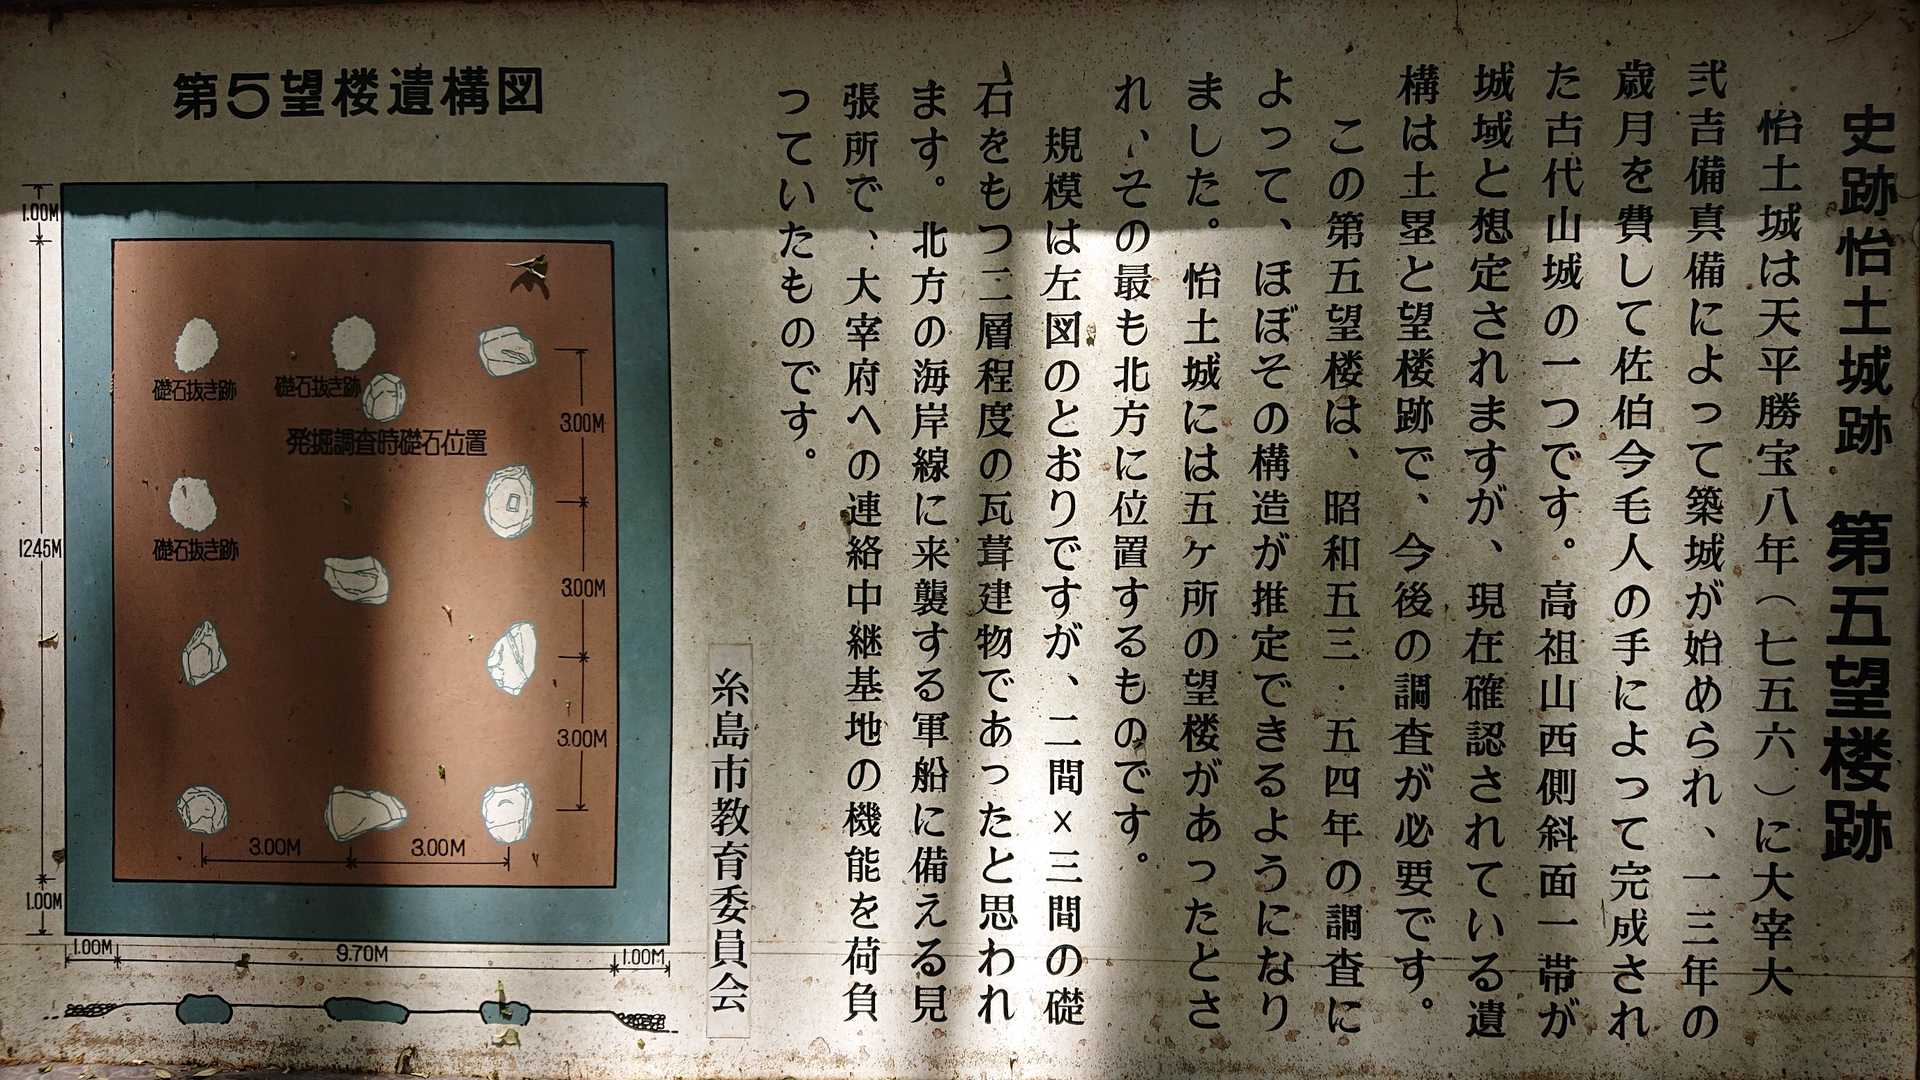 史跡怡土城跡 第五望楼跡
怡土城は天平勝宝八年(七五六)に大宰大
弐吉備真備によって築城が始められ、一三年の
歳月を費して佐伯今毛人の手によって完成され
た古代山城の一つです。高祖山西側斜面一帯が
城域と想定されますが、現在確認されている遺
構は土塁と望楼跡で、今後の調査が必要です。
この第五望楼は、昭和五三・五四年の調査に
よって、ほぼその構造が推定できるようになり
ました。怡土城には五ヶ所の望楼があったとさ
れ、その最も北方に位置するものです。
規模は左図のとおりですが、二間×三間の礎
石をもつ二層程度の瓦葺建物であったと思われ
ます。北方の海岸線に来襲する軍船に備える見
張所で、大宰府への連絡中継基地の機能を荷負
っていたものです。
糸島市教育委員会
第5望楼遺構図
1.00M
礎石抜き跡
礎石抜き跡
発掘調査時礎石位置
3.00M
礎石抜き跡
12.45M
3.00M
3.00M
3.00M
3.00M
1.00M
1.00M
9.70M
1.00M